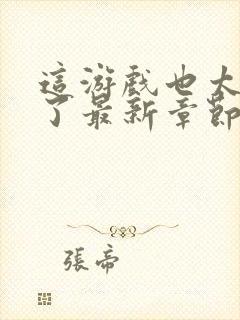 這游戲也太
了最新章節
張帝